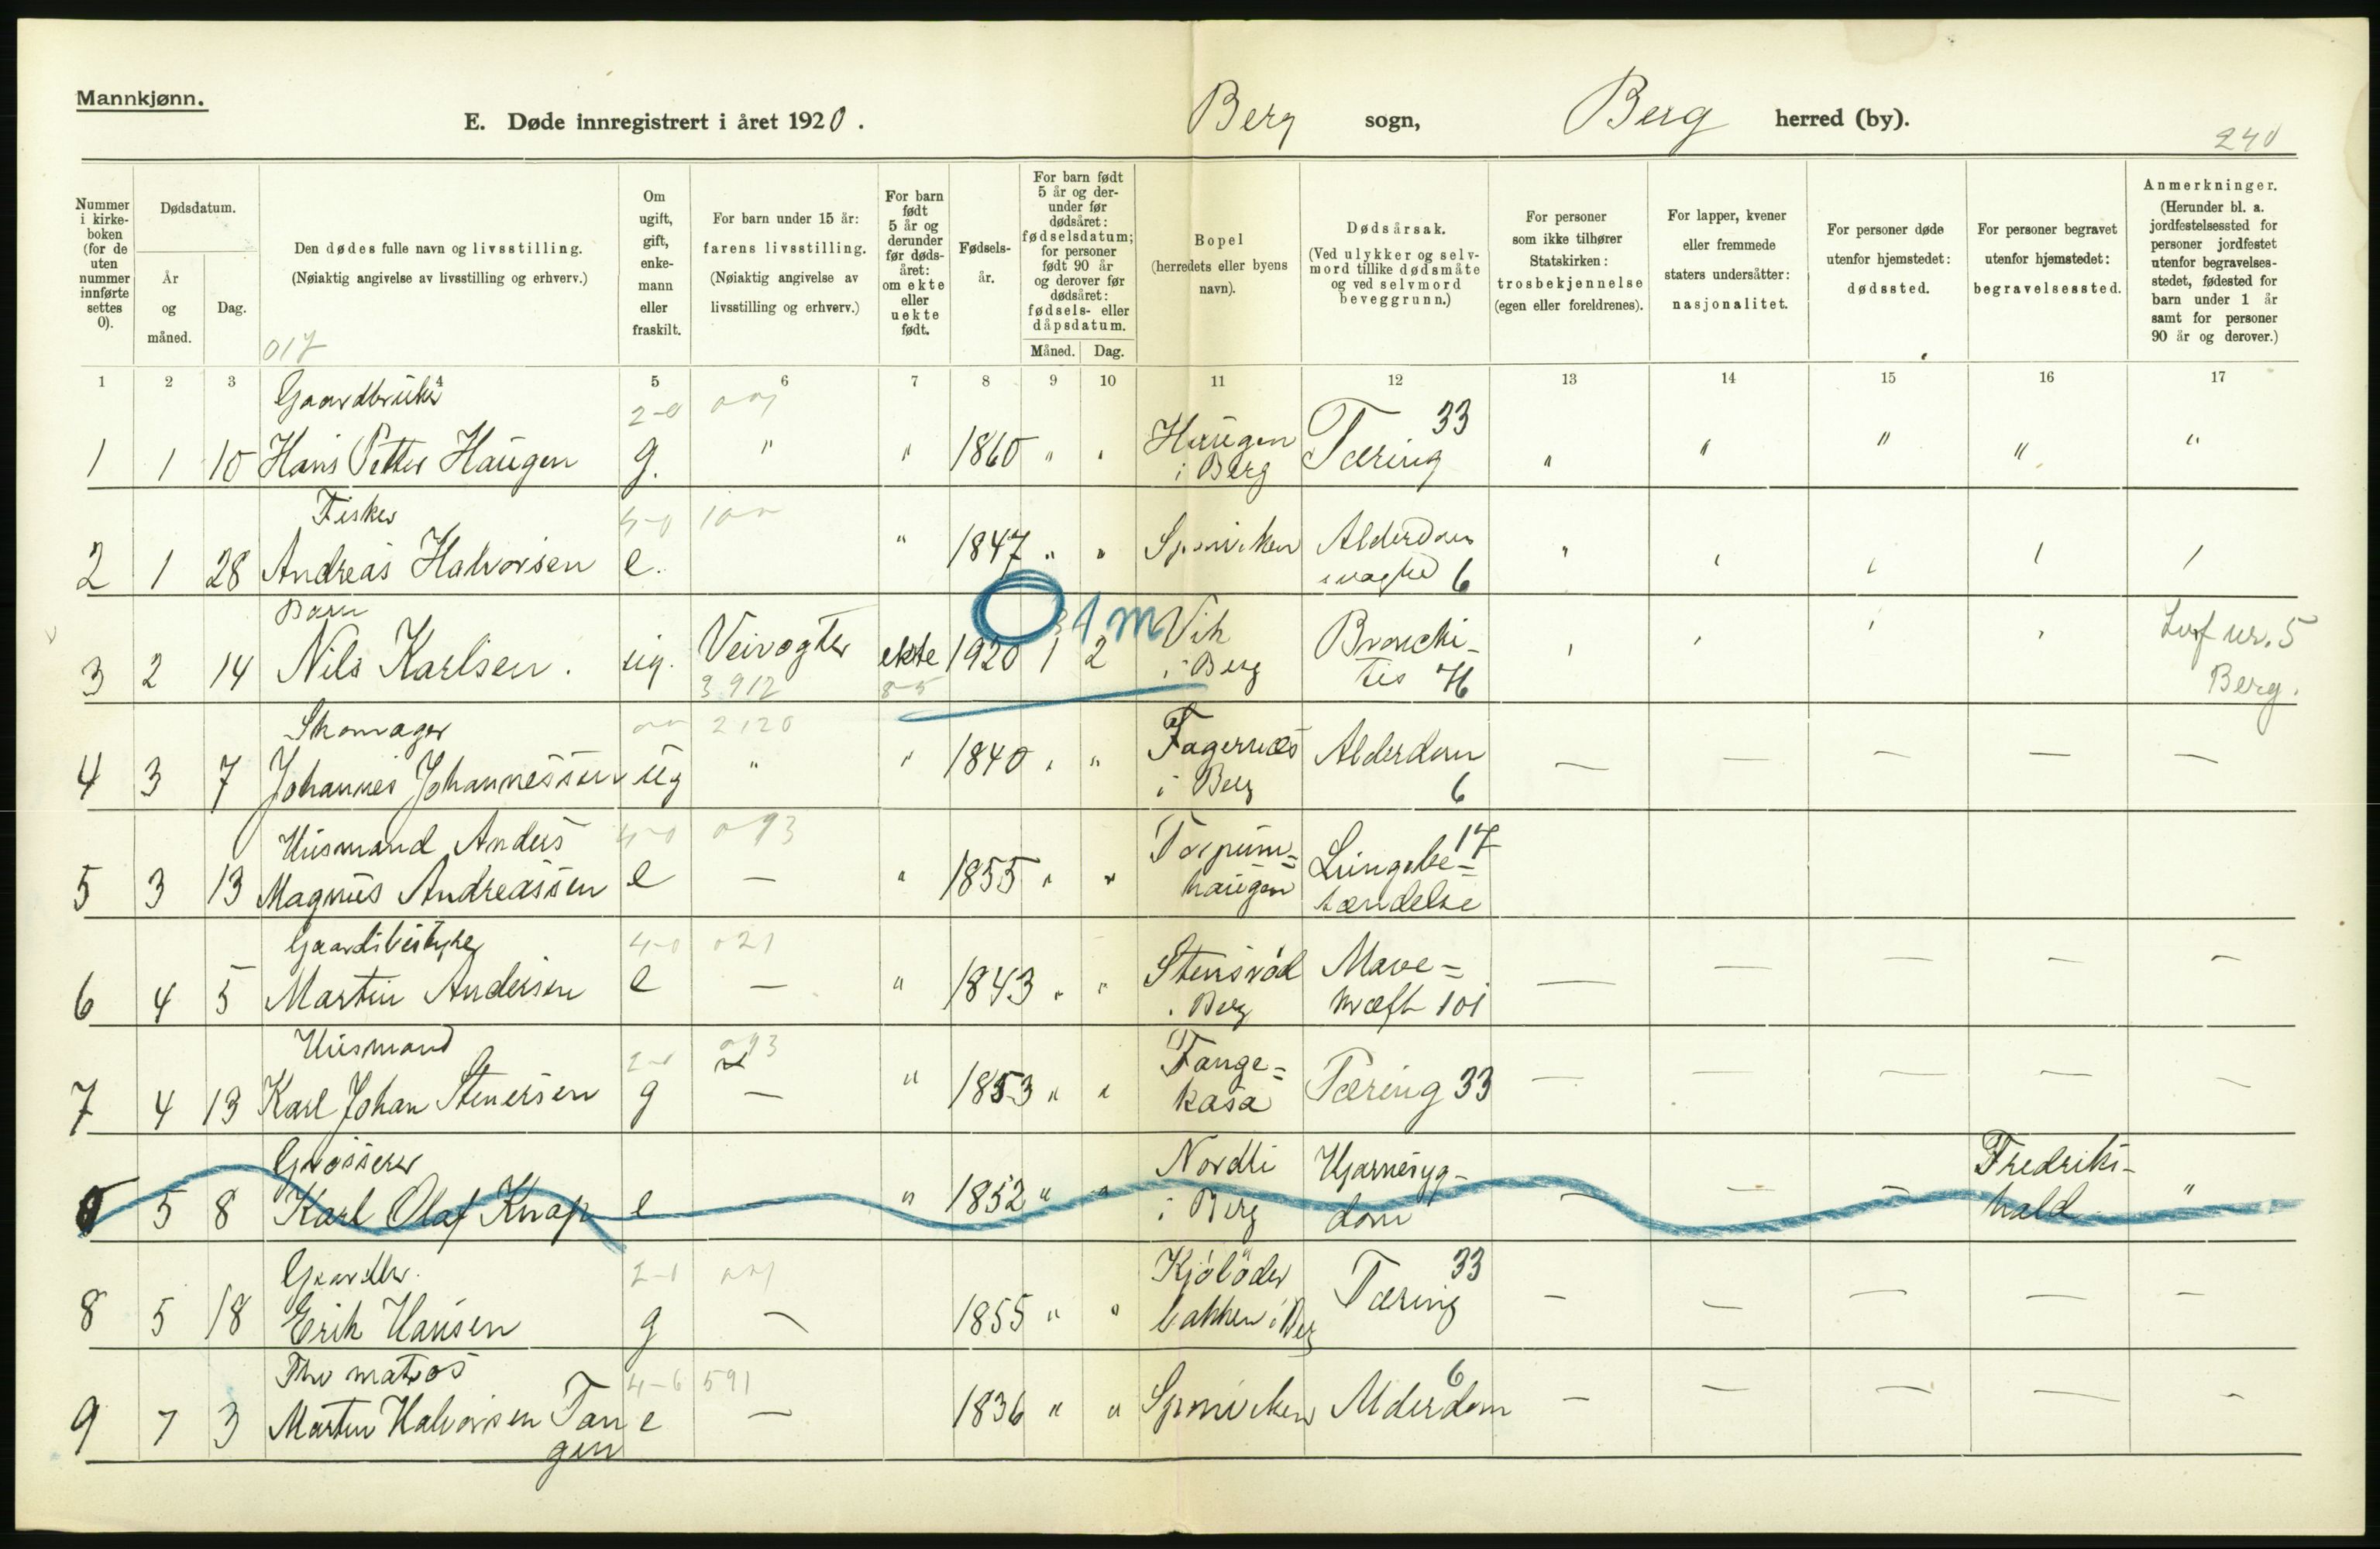 Mannkjønn.
E. Døde innregistrert i året 1920.
Berg sogn, Berg herred (by).
240
Nummer i kirke-boken (for de uten nummer innførte settes 0).
Dødsdatum.
År og måned.
Dag.
Den dødes fulle navn og livsstilling.
(Nøiaktig angivelse av livsstilling og erhverv.)
017
Om ugift, gift, enke-mann eller fraskilt.
For barn under 15 år: farens livsstilling.
(Nøiaktig angivelse av livsstilling og erhverv.)
For barn født 5 år og derunder før døds-året: om ekte eller uekte født.
Fødsels-år.
For barn født 5 år og der-under før dødsåret: fødselsdatum; for personer født 90 år og derover før dødsåret: fødsels- eller dåpsdatum.
Måned. Dag.
Bopel (herredets eller byens navn).
Dødsårsak.
(Ved ulykker og selv-mord tillike dødsmåte og ved selvmord beveggrunn.)
For personer som ikke tilhører Statskirken: trosbekjennelse (egen eller foreldrenes).
For lapper, kvener eller fremmede staters undersåtter: nasjonalitet.
For personer døde utenfor hjemstedet: dødssted.
For personer begravet utenfor hjemstedet: begravelsessted.
Anmerkninger.
(Herunder bl. a. jordfestelsessted for personer jordfestet utenfor begravelses-stedet, fødested for barn under 1 år samt for personer 90 år og derover.)
1 2 3 4 5 6 7 8 9 10 11 12 13 14 15 16 17
Gaardbruker 2-0 Haugen 33
1 1 10 Hans Petter Haugen g. " " 1860 " " i Berg Tæring " " " " "
Fisker 4-0 100 Alderdoms
2 1 28 Andreas Halvorsen e. " 1847 " " Sponviken svaghed 6
Barn 0 1 m Vik Bronchi-
3 2 14 Nils Karlsen. ug. Veivogter ekte 1920 1 2 i Berg tis 76 nr. 5
3912 8-5 Berg.
Skomager 2120 Fagernæs Alderdom
4 3 7 Johannes Johannessen ug " " 1840 " " i Berg 6 — — — — —
Husmand Anders 4-0 093 Torpum= Lungebe= 17
5 3 13 Magnus Andreassen e — " 1855 " " haugen tændelse
Gaardsbestyrer 4-0 021 Stensrød Mave=
6 4 5 Martin Andersen e — " 1843 " " i Berg kræft 101 — — — — —
Husmand 2-0 093 Tange=
7 4 13 Karl Johan Stenersen g — " 1853 " " kåsa Tæring 33 — — — — —
Grosserer Nordli Hjernesyg- Fredriks-
5 8 Karl Olaf Knap e — " 1852 " " i Berg dom — — — hald "
Gaardbr. 33
8 5 18 Erik Hansen g — 1855 " " bakken i Berg Tæring — — — — —
Fhv matros 4-6 591 6
9 7 3 Martin Halvorsen Tan e — 1836 " " Sponviken Alderdom — — — — —
gen